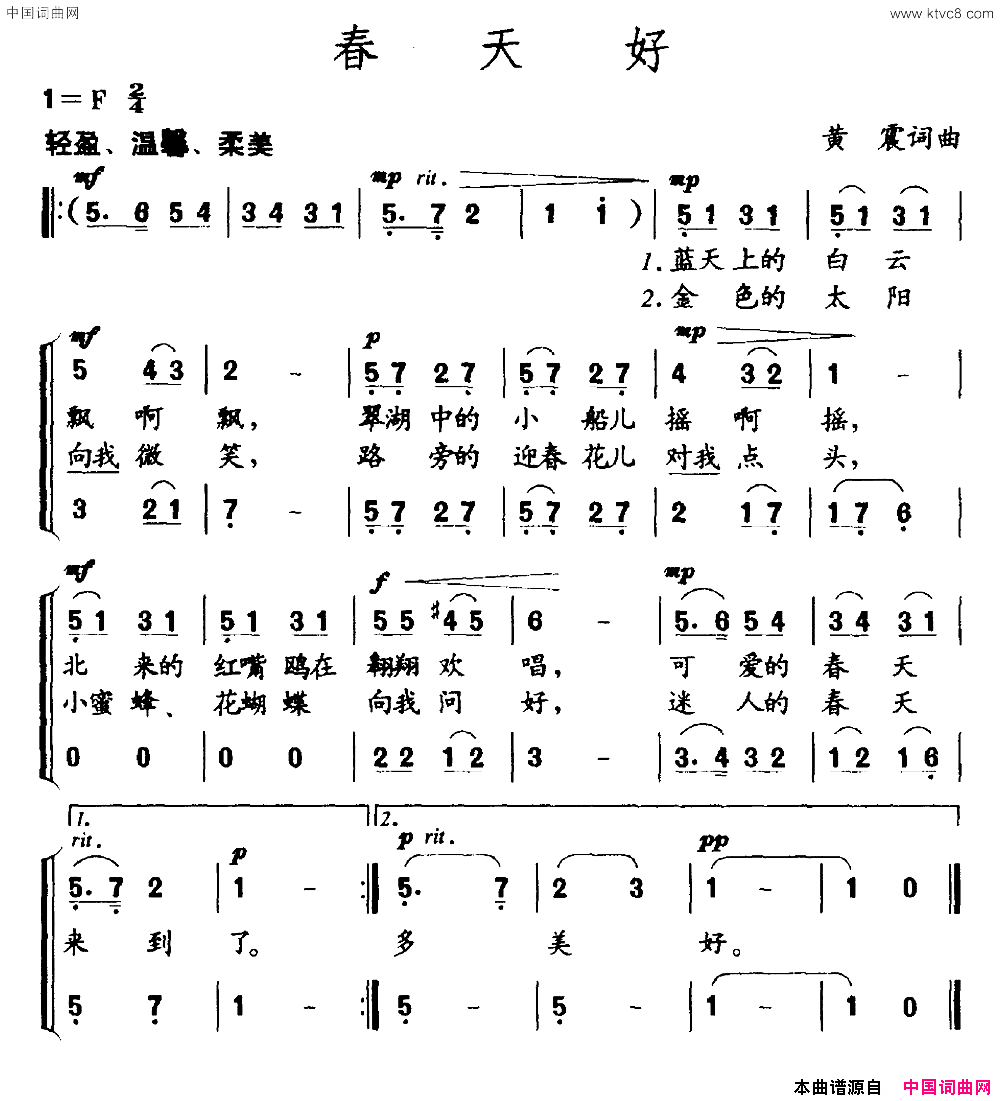 中国词曲网 www.ktvc8.com
春 天 好
1=F 2/4
轻盈、温馨、柔美 黄 震词曲
mf mp rit. mp
(5. 6 5 4 | 3 4 3 1 | 5. 7 2 | 1 i ) | 5 1 3 1 | 5 1 3 1 |
1.蓝天上的 白 云
2.金 色的 太 阳
mf p mp
5 4 3 | 2 - | 5 7 2 7 | 5 7 2 7 | 4 3 2 | 1 - |
飘 啊 飘, 翠湖 中的 小 船儿 摇 啊 摇,
向我 微 笑, 路 旁的 迎春 花儿 对我 点 头,
3 2 1 | 7 - | 5 7 2 7 | 5 7 2 7 | 2 1 7 | 1 7 6 |
mf f mp
5 1 3 1 | 5 1 3 1 | 5 5 #4 5 | 6 - | 5. 6 5 4 | 3 4 3 1 |
北 来的 红嘴 鸥在 翱翔 欢 唱, 可 爱的 春 天
小蜜 蜂、 花蝴 蝶 向我 问 好, 迷 人的 春 天
0 0 | 0 0 | 2 2 1 2 | 3 - | 3. 4 3 2 | 1 2 1 6 |
1. 2.
rit. p p rit. pp
5. 7 2 | 1 - :| 5. 7 | 2 3 | 1 - | 1 0 |
来 到 了。 多 美 好。
5 7 | 1 - :| 5 - | 5 - | 1 - | 1 0 |
本曲谱源自 中国词曲网